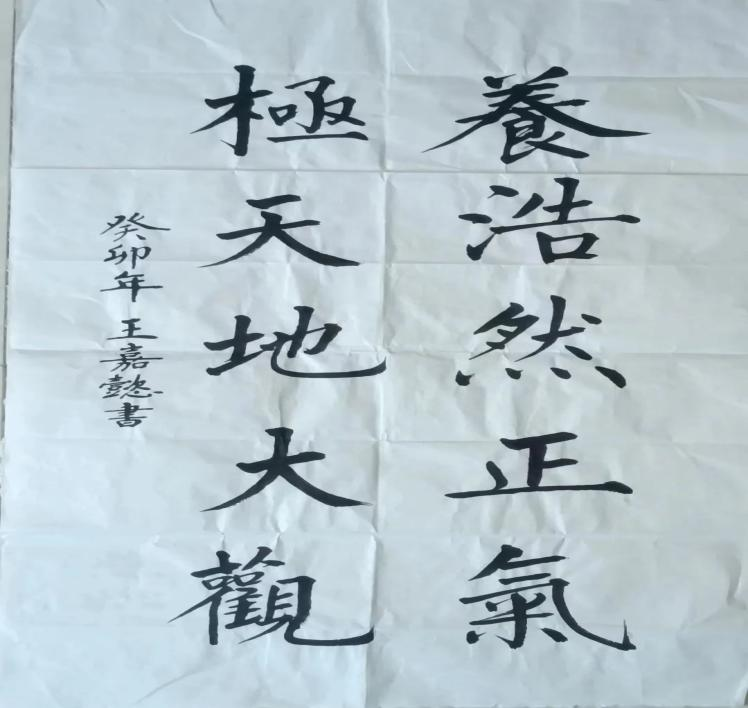 養浩然正氣
極天地大觀
癸卯年王嘉懿書